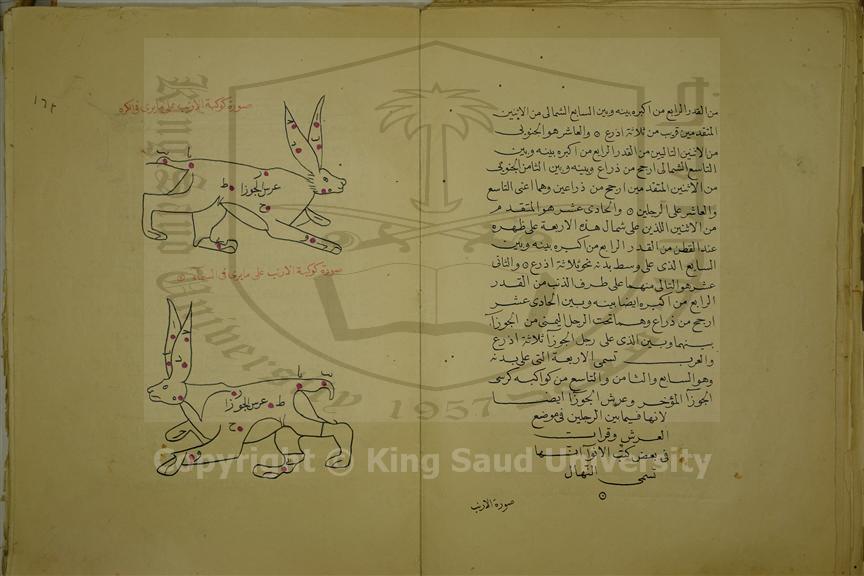 من القدر الرابع من اكبره بينه وبين السابع الشمالى من الاثنين
المتقدمين قريب من ثلاثة اذرع والعاشر هو الجنوبى
من الاثنين التاليين من القدر الرابع من اكبره بينه وبين
التاسع الشمالى ارجح من ذراع وبينه وبين الثامن الجنوبى
من الاثنين المتقدمين ارجح من ذراعين وهما اعنى التاسع
والعاشر على الرجلين والحادى عشر هو المتقدم
من الاثنين اللذين على شمال هذه الاربعة على ظهره
عند القطن من القدر الرابع من اكبره بينه وبين
السابع الذى على وسط بدنه نحو ثلاثة اذرع والثانى
عشر هو التالى منهما على طرف الذنب من القدر
الرابع من اكبره ايضا بينه وبين الحادى عشر
ارجح من ذراع وهما تحت الرجل اليمنى من الجوزآ
بينهما وبين الذى على رجل الجوزآ ثلاثة اذرع
والعرب تسمى الاربعة التى على بدنه
وهو السابع والثامن والتاسع من كواكبه كرسى
الجوزآ المؤخر وعرش الجوزآ ايضا
لانها فيما بين الرجلين فى موضع
العرش وقرات
فى بعض كتب الانوآ انها
تسمى النهال
صورة الارنب
١٦٢
صورة كوكبة الارنب على ما يرى فى الكره
عرش الجوزا
صورة كوكبة الارنب على ما يرى فى السمآء
عرش الجوزا
King Saud University
1957
Copyright © King Saud University